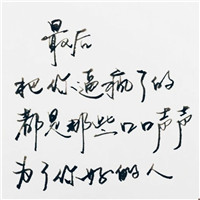 最后
把你逼疯了的
都是那些口口声声
为了你好的人